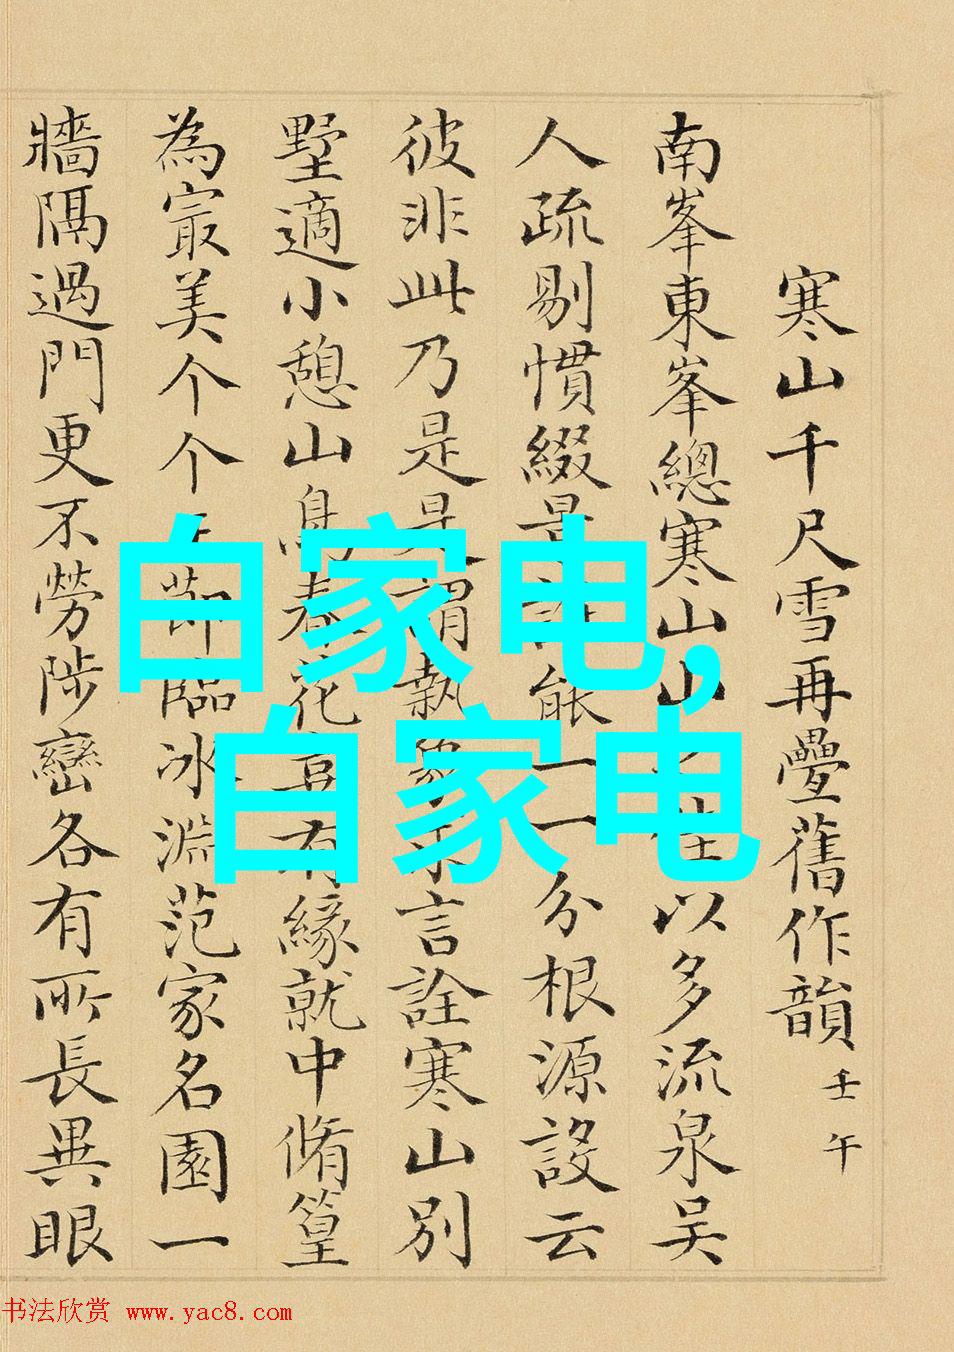 寒山千尺雪再疊舊作韻 壬午
南峯東峯總寒山山佳以多流泉吴
人疏剔慣綴景能一一分根源設云
彼非此乃是是謂執象求言詮寒山別
墅適小憩山鳥春花有緣就中脩篁
為㝡美个个節臨冰淵范家名園一
牆隔過門更不勞陟巒各有所長異眼
白家电,
白家电
书法欣赏 www.yac8.com